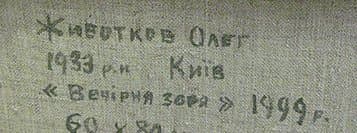 Животков Олег
1933 р.н Київ
«Вечірня зоря» 1999 р.
60 x 80